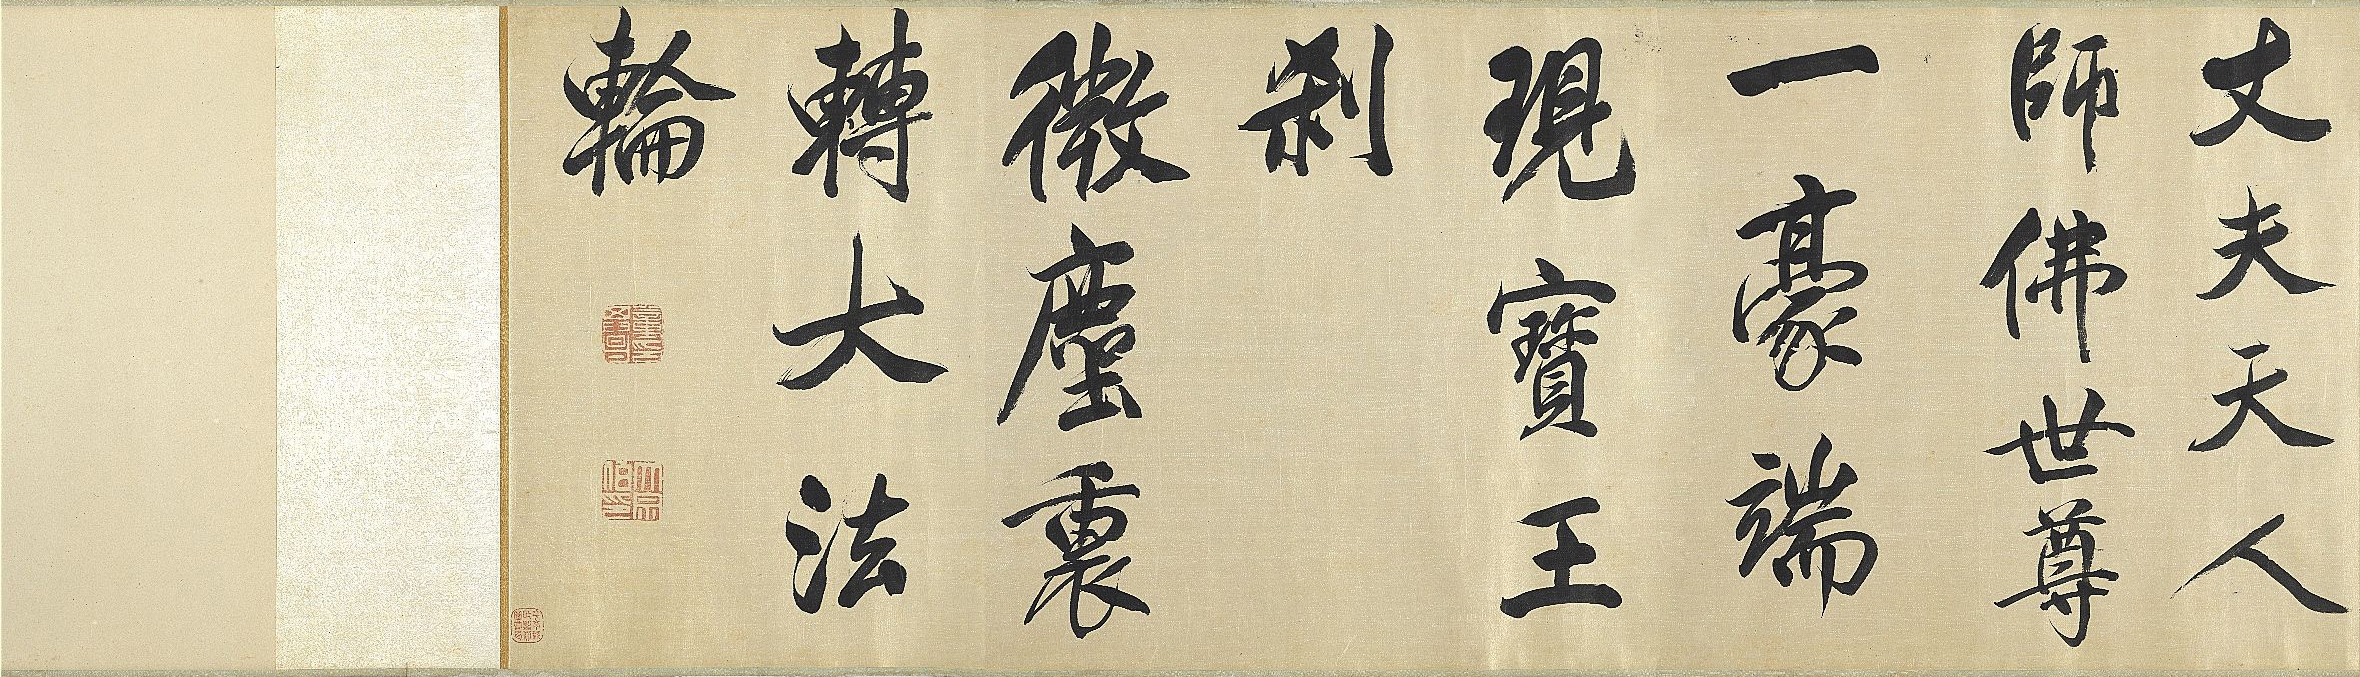 丈夫天人
師佛世尊
一豪端
現寶王
刹
微塵裏
轉大法
輪